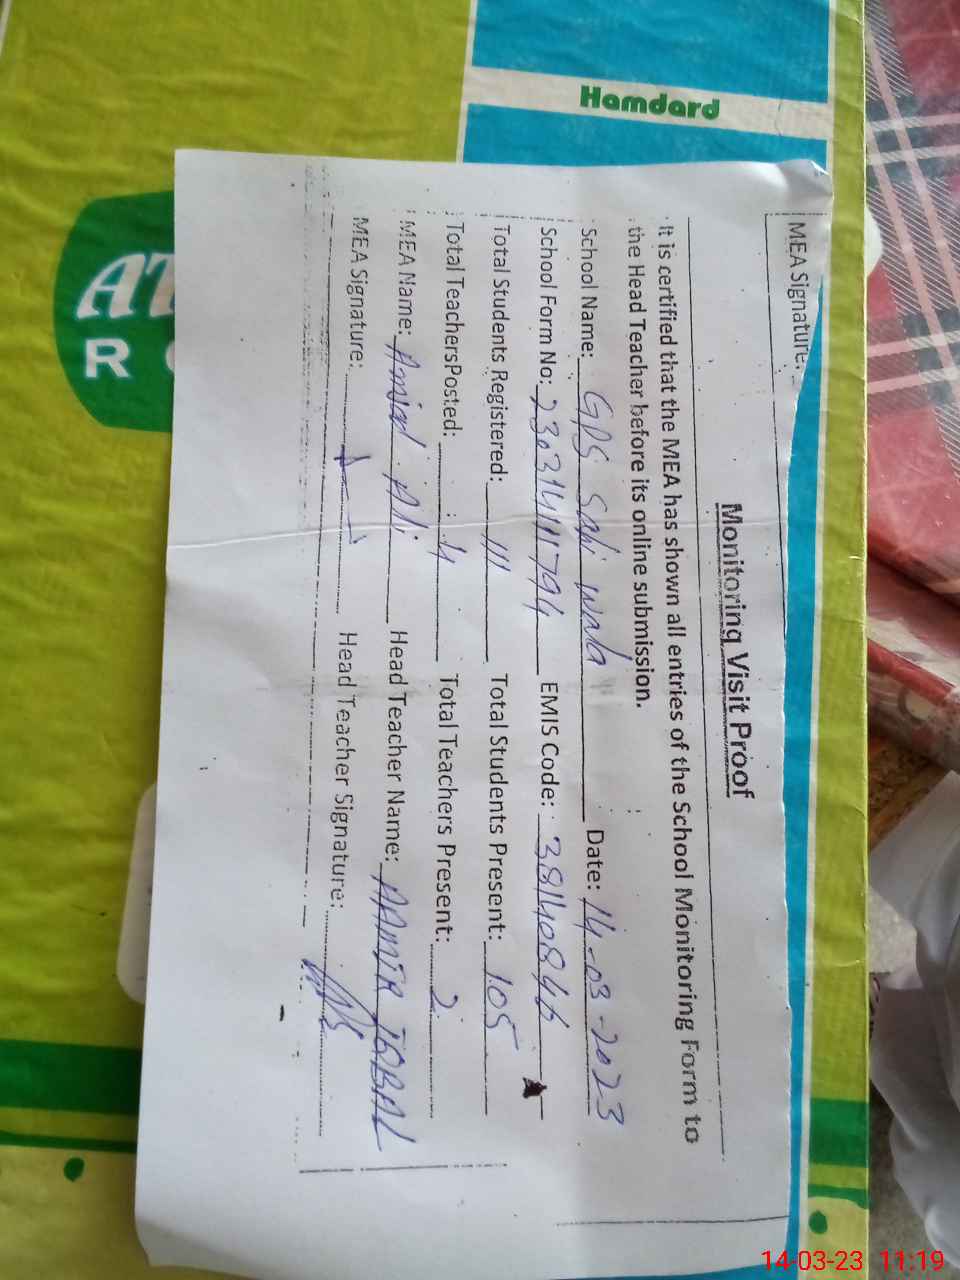 Hamdard
MEA Signature:
Monitoring Visit Proof
It is certified that the MEA has shown all entries of the School Monitoring Form to
the Head Teacher before its online submission.
School Name: GPS Sahi Wala Date: 14-03-2023
School Form No: 2303141794 EMIS Code: 38140846
Total Students Registered: 111 Total Students Present: 105
Total TeachersPosted: 4 Total Teachers Present: 2
MEA Name: Amjad Ali Head Teacher Name: AAMIR IQBAL
MEA Signature: Head Teacher Signature:
AT
R
14-03-23 11:19